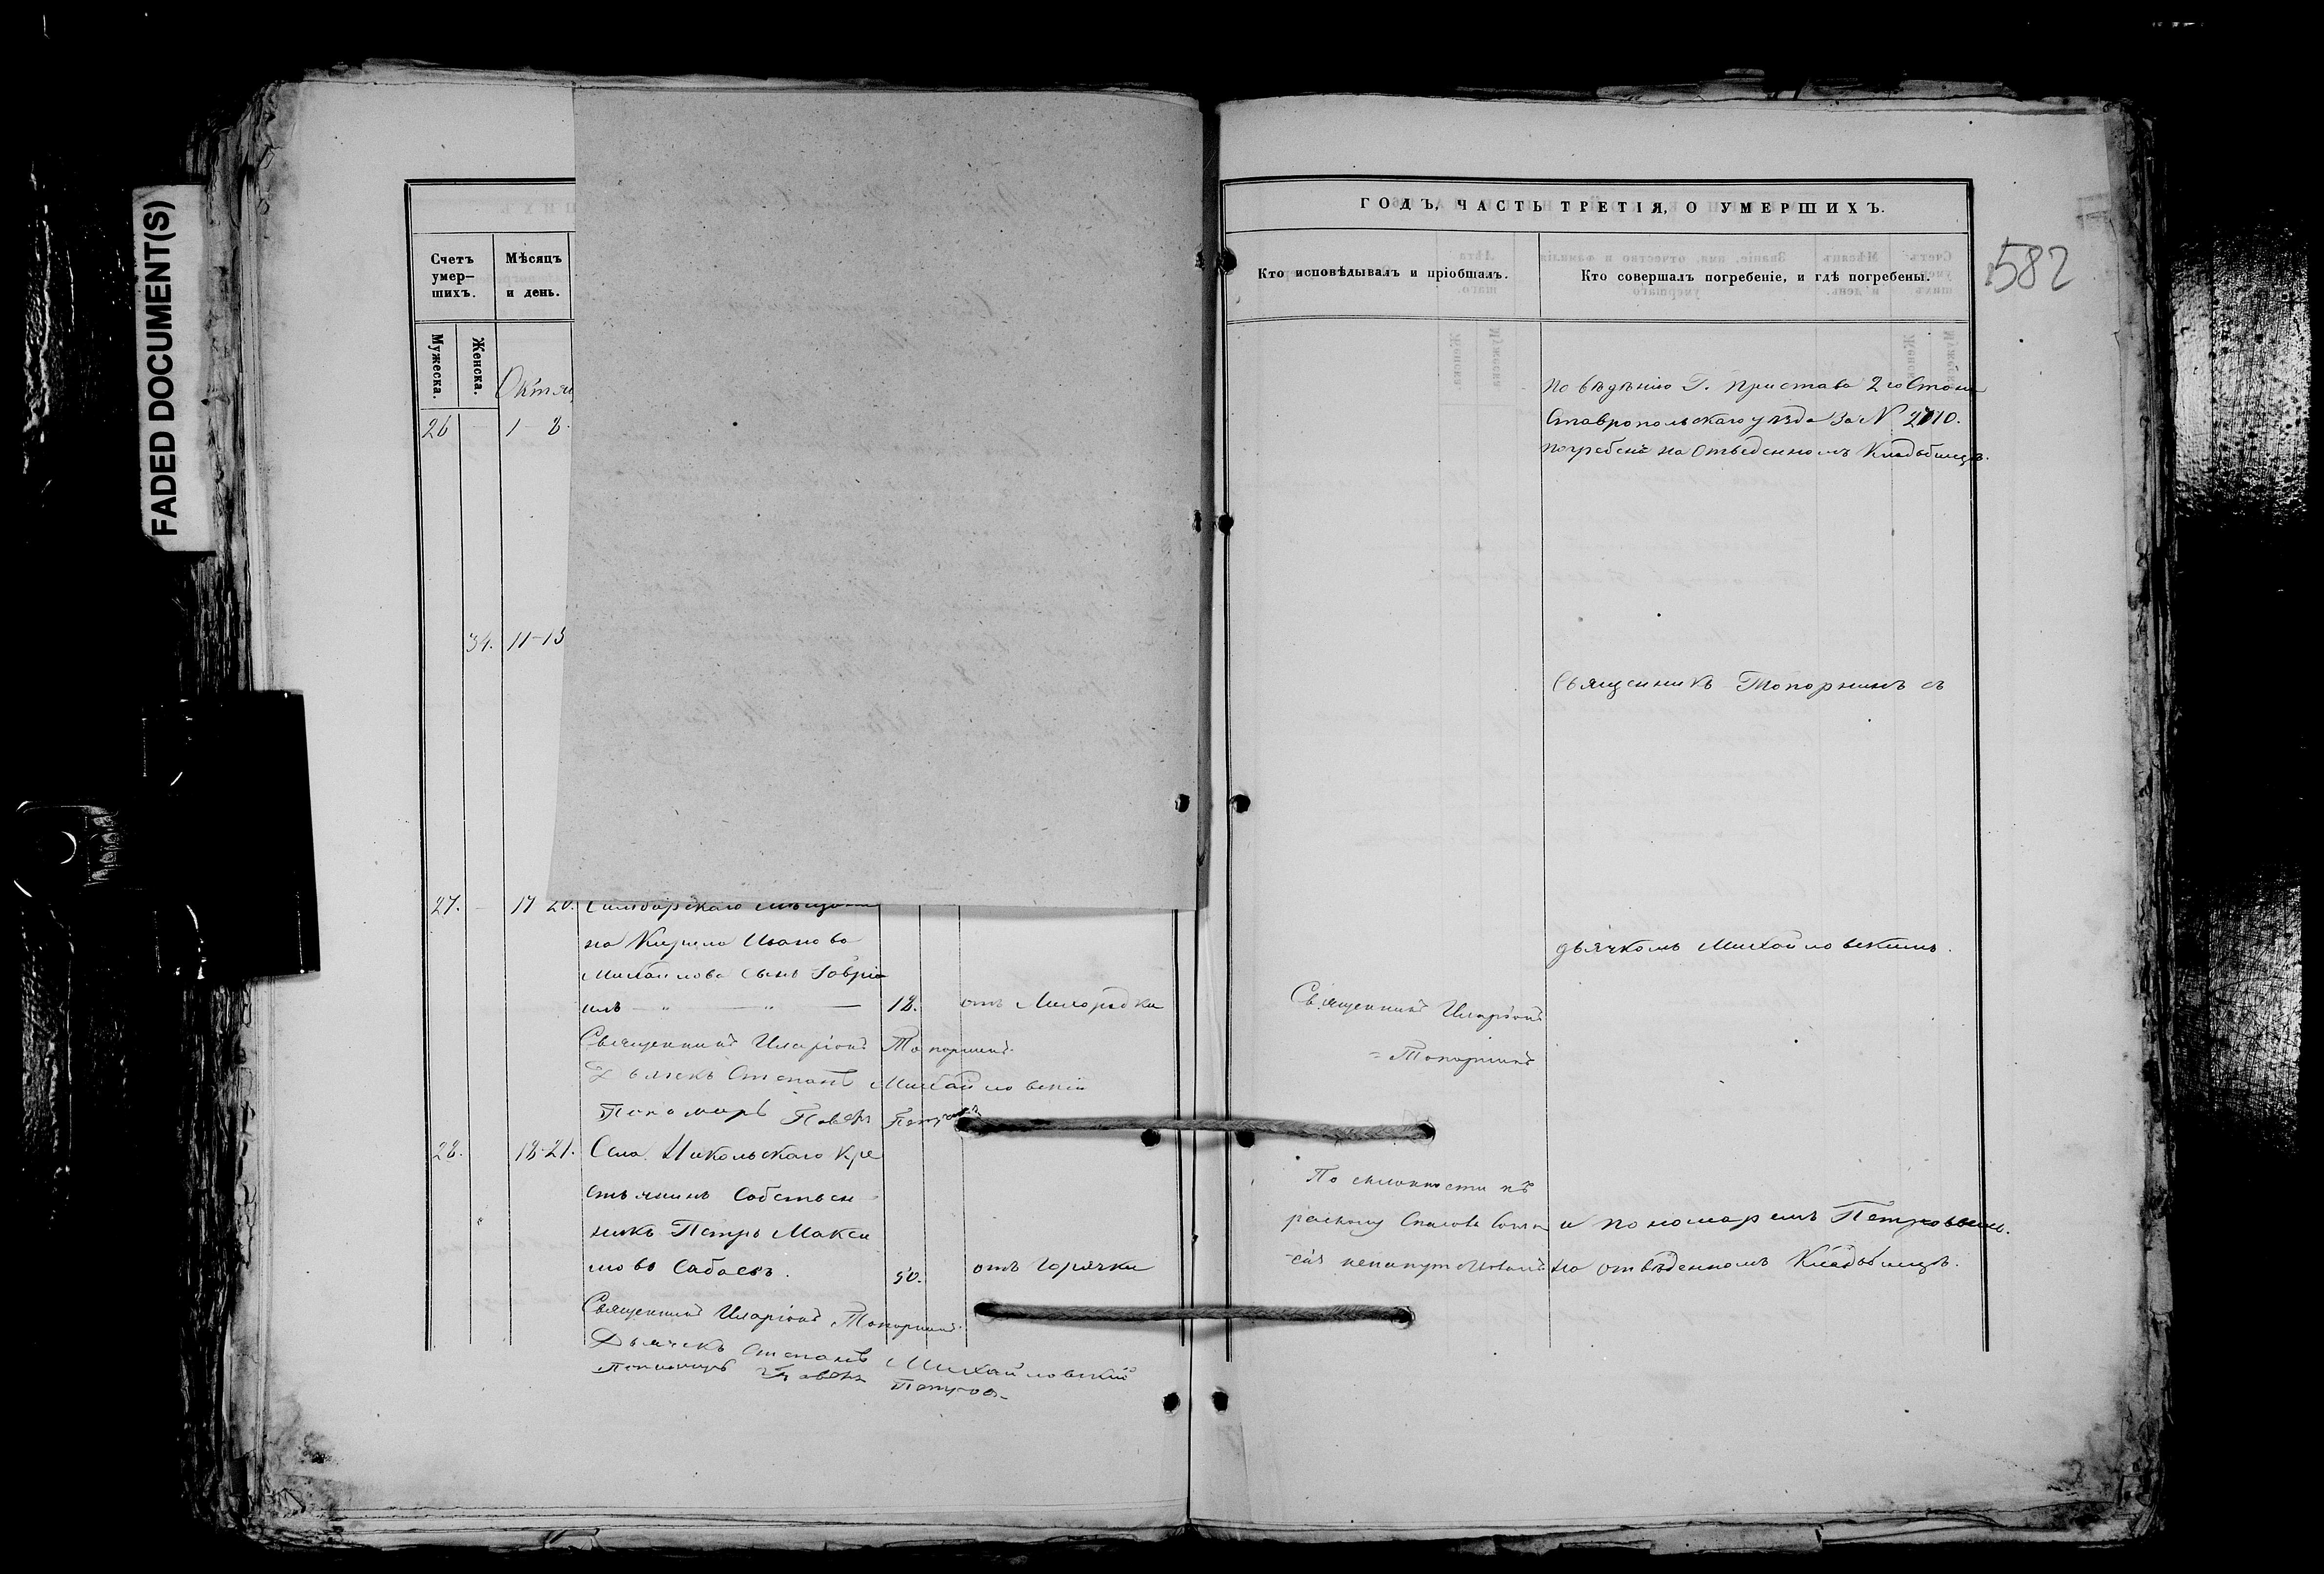 FADED DOCUMENT(S)
Счетъ умер-
шихъ.
Мѣсяцъ
и день.
Мужеска.
Женска.
Октя
26 1 8.
34. 11-13
27. 17 20. Симбирскаго мѣщани
на Кирила Иванова
Михайлова сынъ Гаврiи
илъ 18. отъ Лихорадки
Священникъ Иларіонъ Топорнинъ.
Дьячекъ Степанъ Михайловскій
Пономарь Павелъ Петровъ
28. 18-21. Села Никольскаго Кре
стьянинъ Собствен
никъ Петръ Макси
мовъ Сабаевъ. 50. отъ горячки
Священникъ Иларіонъ Топорнинъ.
Дьячекъ Степанъ Михайловскій
Пономарь Павелъ Петровъ
ГОДЪ, ЧАСТЬ ТРЕТІЯ, О УМЕРШИХЪ.
582
Кто исповѣдывалъ и пріобщалъ.
Кто совершалъ погребеніе, и гдѣ погребены.
по вѣденію Г. пристава 2 го Стана
Ставропольскаго уѣзда За № 2710.
погребенъ на Отведенномъ Кладбищѣ.
Священникъ Топорнинъ съ
дьячкомъ Михайловскимъ.
Священникъ Иларіонъ
Топорнинъ
По склонности къ
расколу
и пономаремъ Петровымъ.
на отвѣденномъ Кладбищѣ.